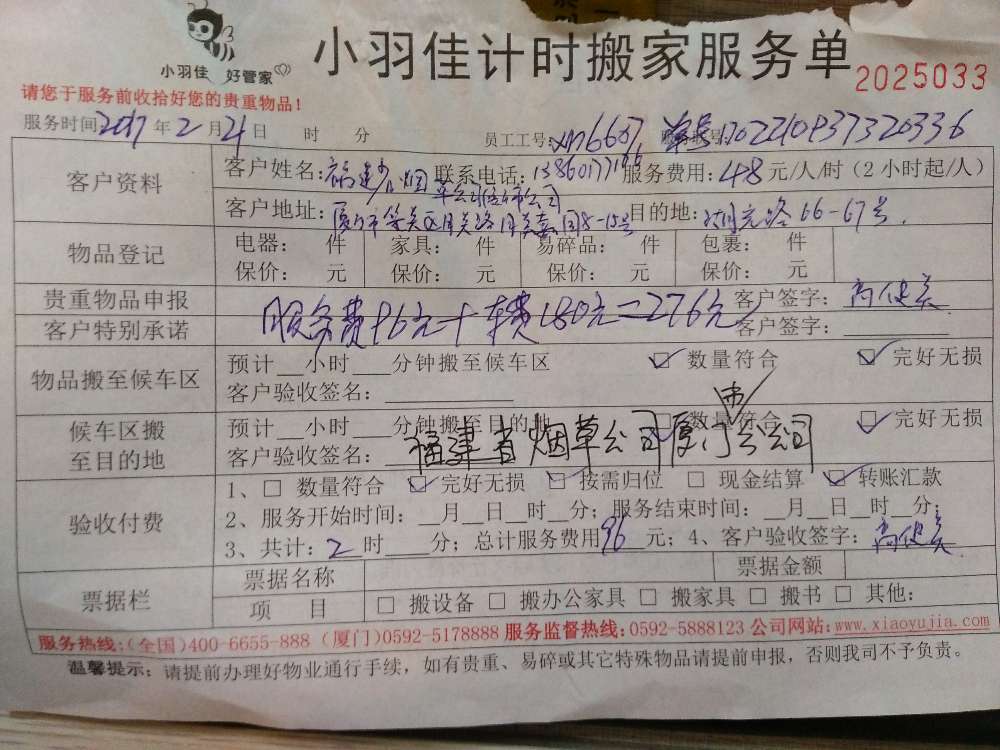 小羽佳 好管家
小羽佳计时搬家服务单
2025033
请您于服务前收拾好您的贵重物品!
服务时间2017年2月21日 时 分 员工工号:xm6607 单号:1702210937320336
客户资料
客户姓名:福建省烟草公司厦门市公司 联系电话:13860177196 服务费用:48元/人/时(2小时起/人)
客户地址: 目的地: 66-67号
物品登记
电器: 件 家具: 件 易碎品: 件 包裹: 件
保价: 元 保价: 元 保价: 元 保价: 元
贵重物品申报 客户签字:
服务费96元+车费180元=276元
客户特别承诺 客户签字:
物品搬至候车区
预计__小时___分钟搬至候车区 ☑ 数量符合 ☑ 完好无损
客户验收签名:
候车区搬
至目的地
预计__小时___分钟搬至目的地 ☑ 数量符合 ☑ 完好无损
客户验收签名:福建省烟草公司厦门市公司
验收付费
1、□ 数量符合 ☑ 完好无损 ☑ 按需归位 □ 现金结算 ☑ 转账汇款
2、服务开始时间:__月__日__时__分;服务结束时间:__月__日__时__分;
3、共计:2时___分;总计服务费用96元;4、客户验收签字:
票据栏
票据名称 票据金额
项 目 □ 搬设备 □ 搬办公家具 □ 搬家具 □ 搬书 □ 其他:
服务热线:(全国)400-6655-888 (厦门)0592-5178888 服务监督热线:0592-5888123 公司网站:www.xiaoyujia.com
温馨提示:请提前办理好物业通行手续,如有贵重、易碎或其它特殊物品请提前申报,否则我司不予负责。